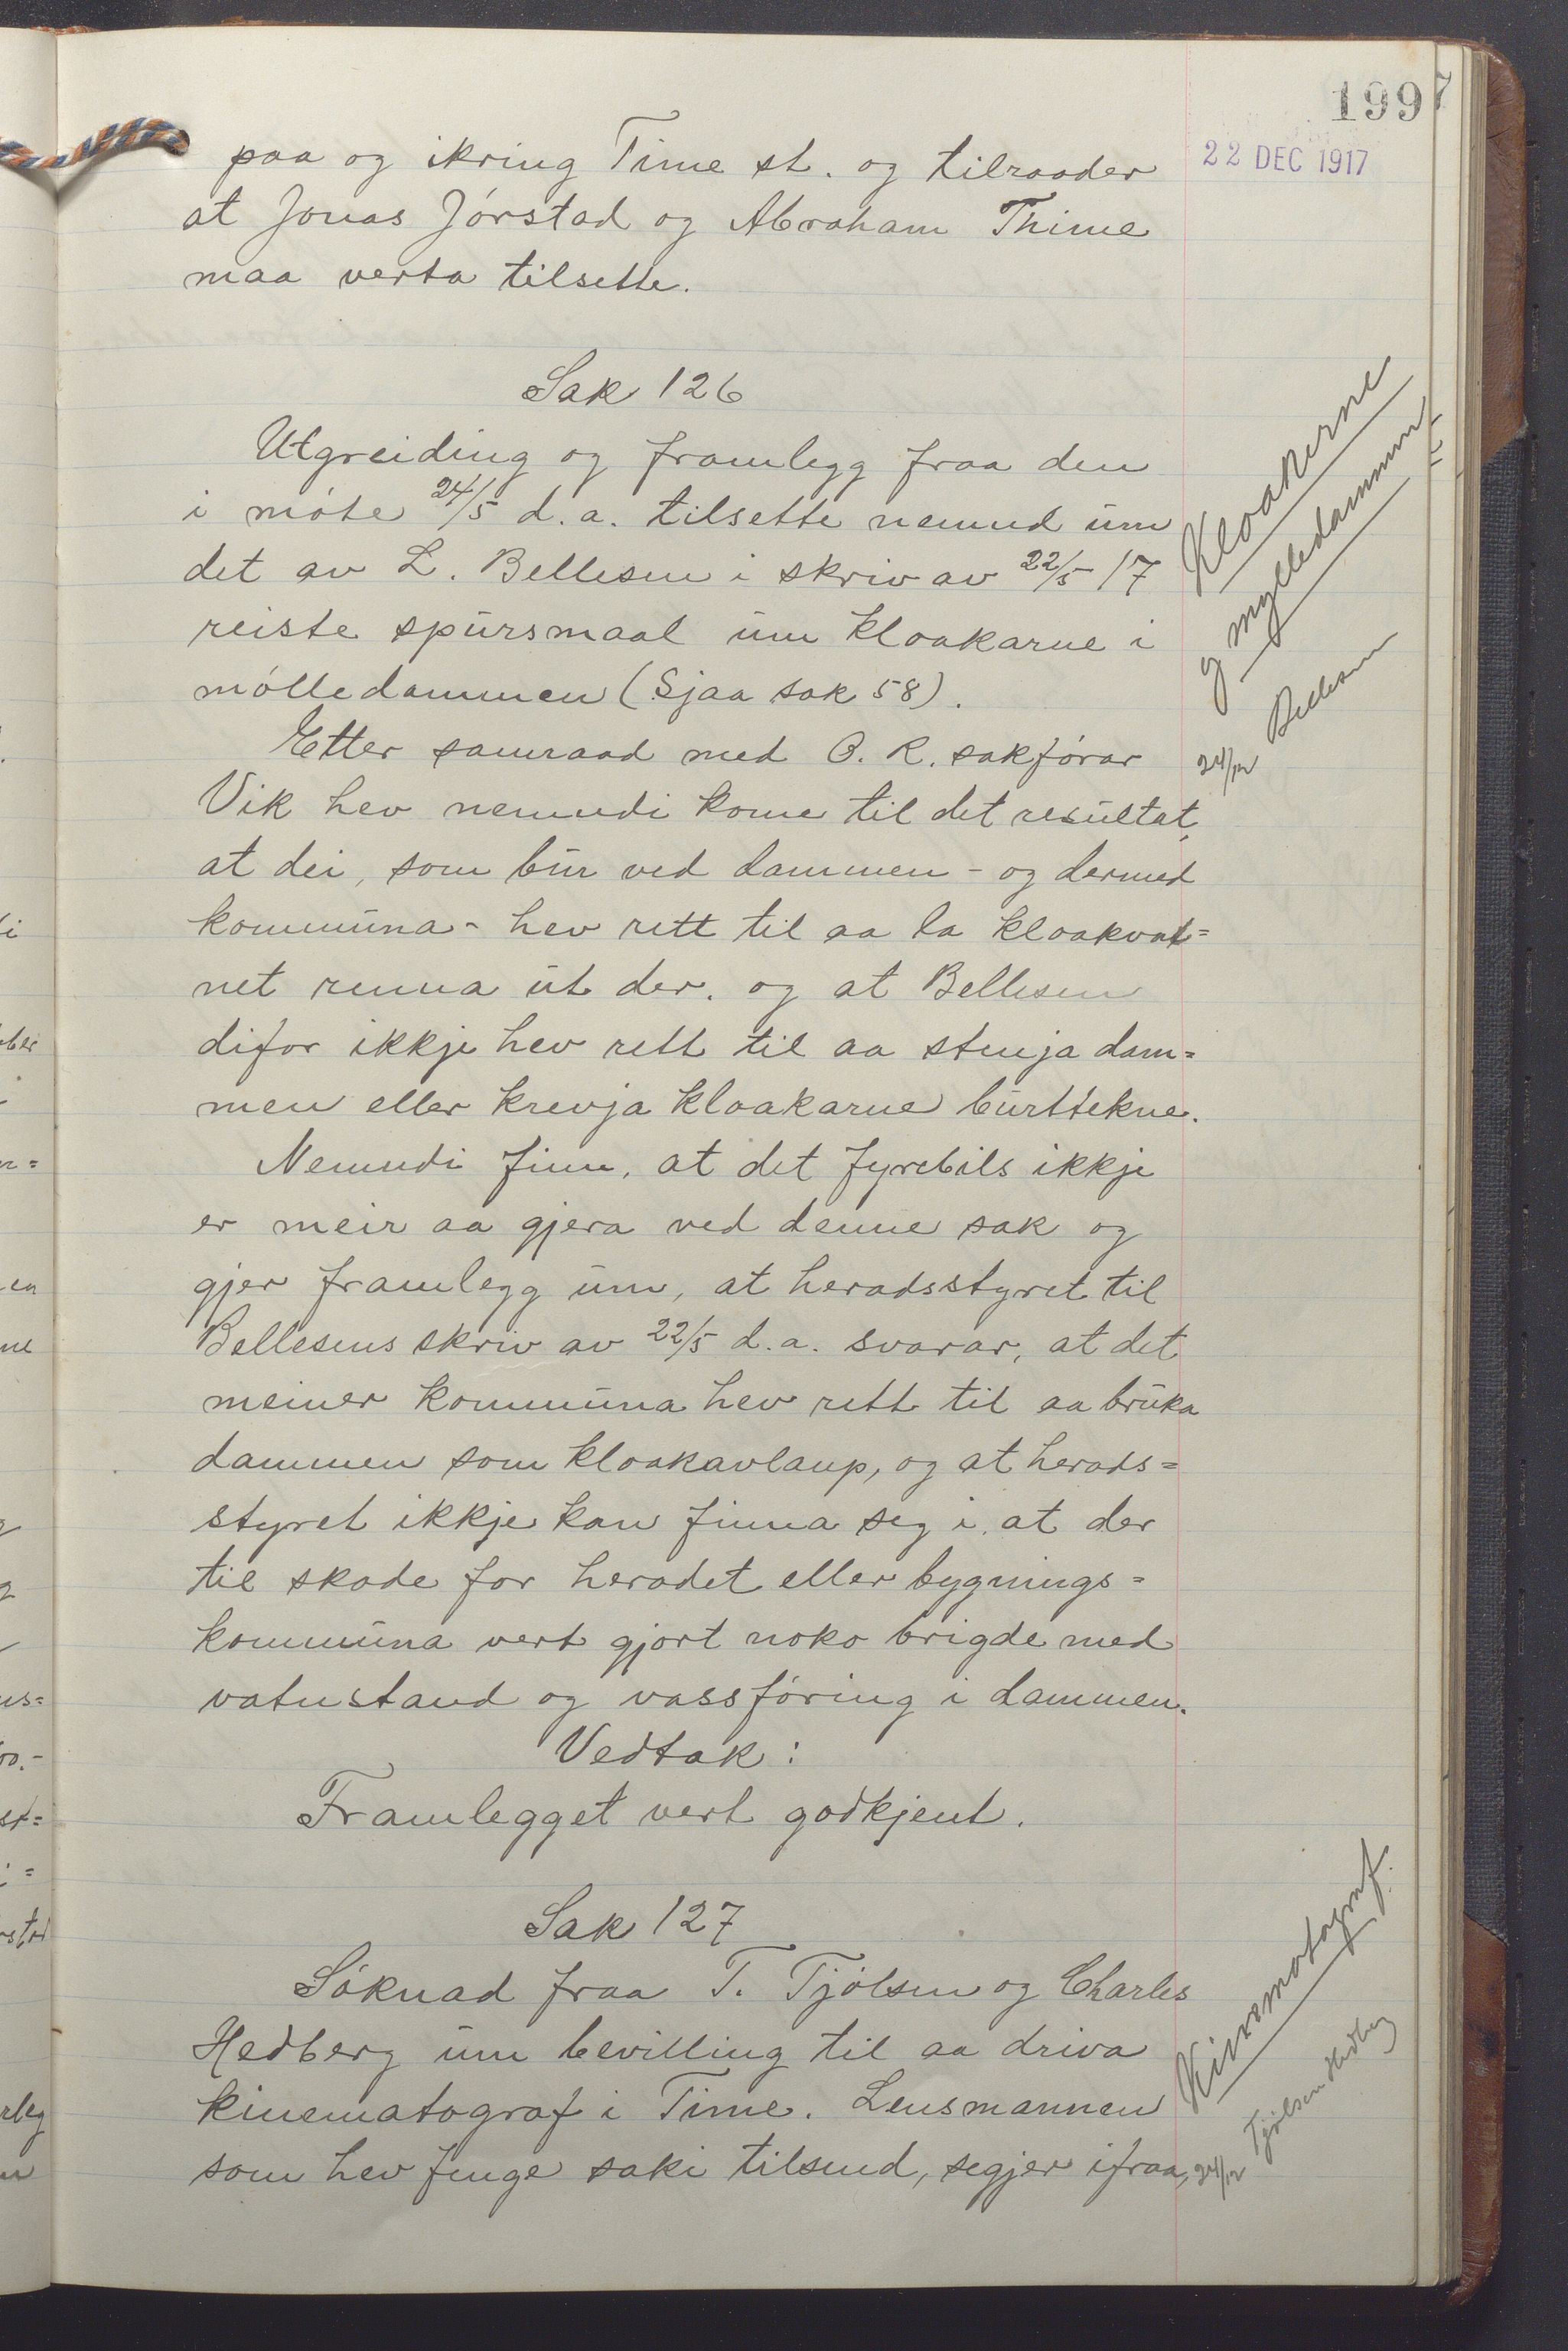 199
22 DEC 1917
paa og ikring Time st. og tilraader
at Jonas Jórstad og Abraham Thime
maa verta tilsette.
Sak 126
Utgreiding og framlegg fraa den
i móte 24/5 d.a. tilsette nemnd um
det av L. Bellesen i skriv av 22/5 17
reiste spursmaal um kloakarne i
mólledammen (Sjaa sak 58).
Kloakerne
og mylledammen
Bellesen
24/12
Etter samraad med O. R. sakfórar
Vik hev nemndi kome til det resultat,
at dei, som bur ved dammen - og dermed
kommuna - hev rett til aa la kloakvat=
net renna ut der, og at Bellesen
difor ikkje hev rett til aa stenja dam=
men eller krevja kloakarne burttekne.
Nemndi finn, at det fyrebils ikkje
er meir aa gjera ved denne sak og
gjer framlegg um, at heradsstyret til
Bellesens skriv av 22/5 d.a. svarar, at det
meiner kommuna hev rett til aa bruka
dammen som kloakavlaup, og at herads=
styret ikkje kan finna seg i, at der
til skade for heradet eller bygnings=
kommuna vert gjort noko brigde med
vatnstand og vassfóring i dammen.
Vedtak:
Framlegget vert godkjent.
Sak 127
Sóknad fraa T. Tjólsen og Charles
Hedberg um bevilling til aa driva
kinematograf i Time. Lensmannen
som hev fenge saki tilsend, segjer ifraa,
Kinematograf.
Tjólsen Hedberg
24/12